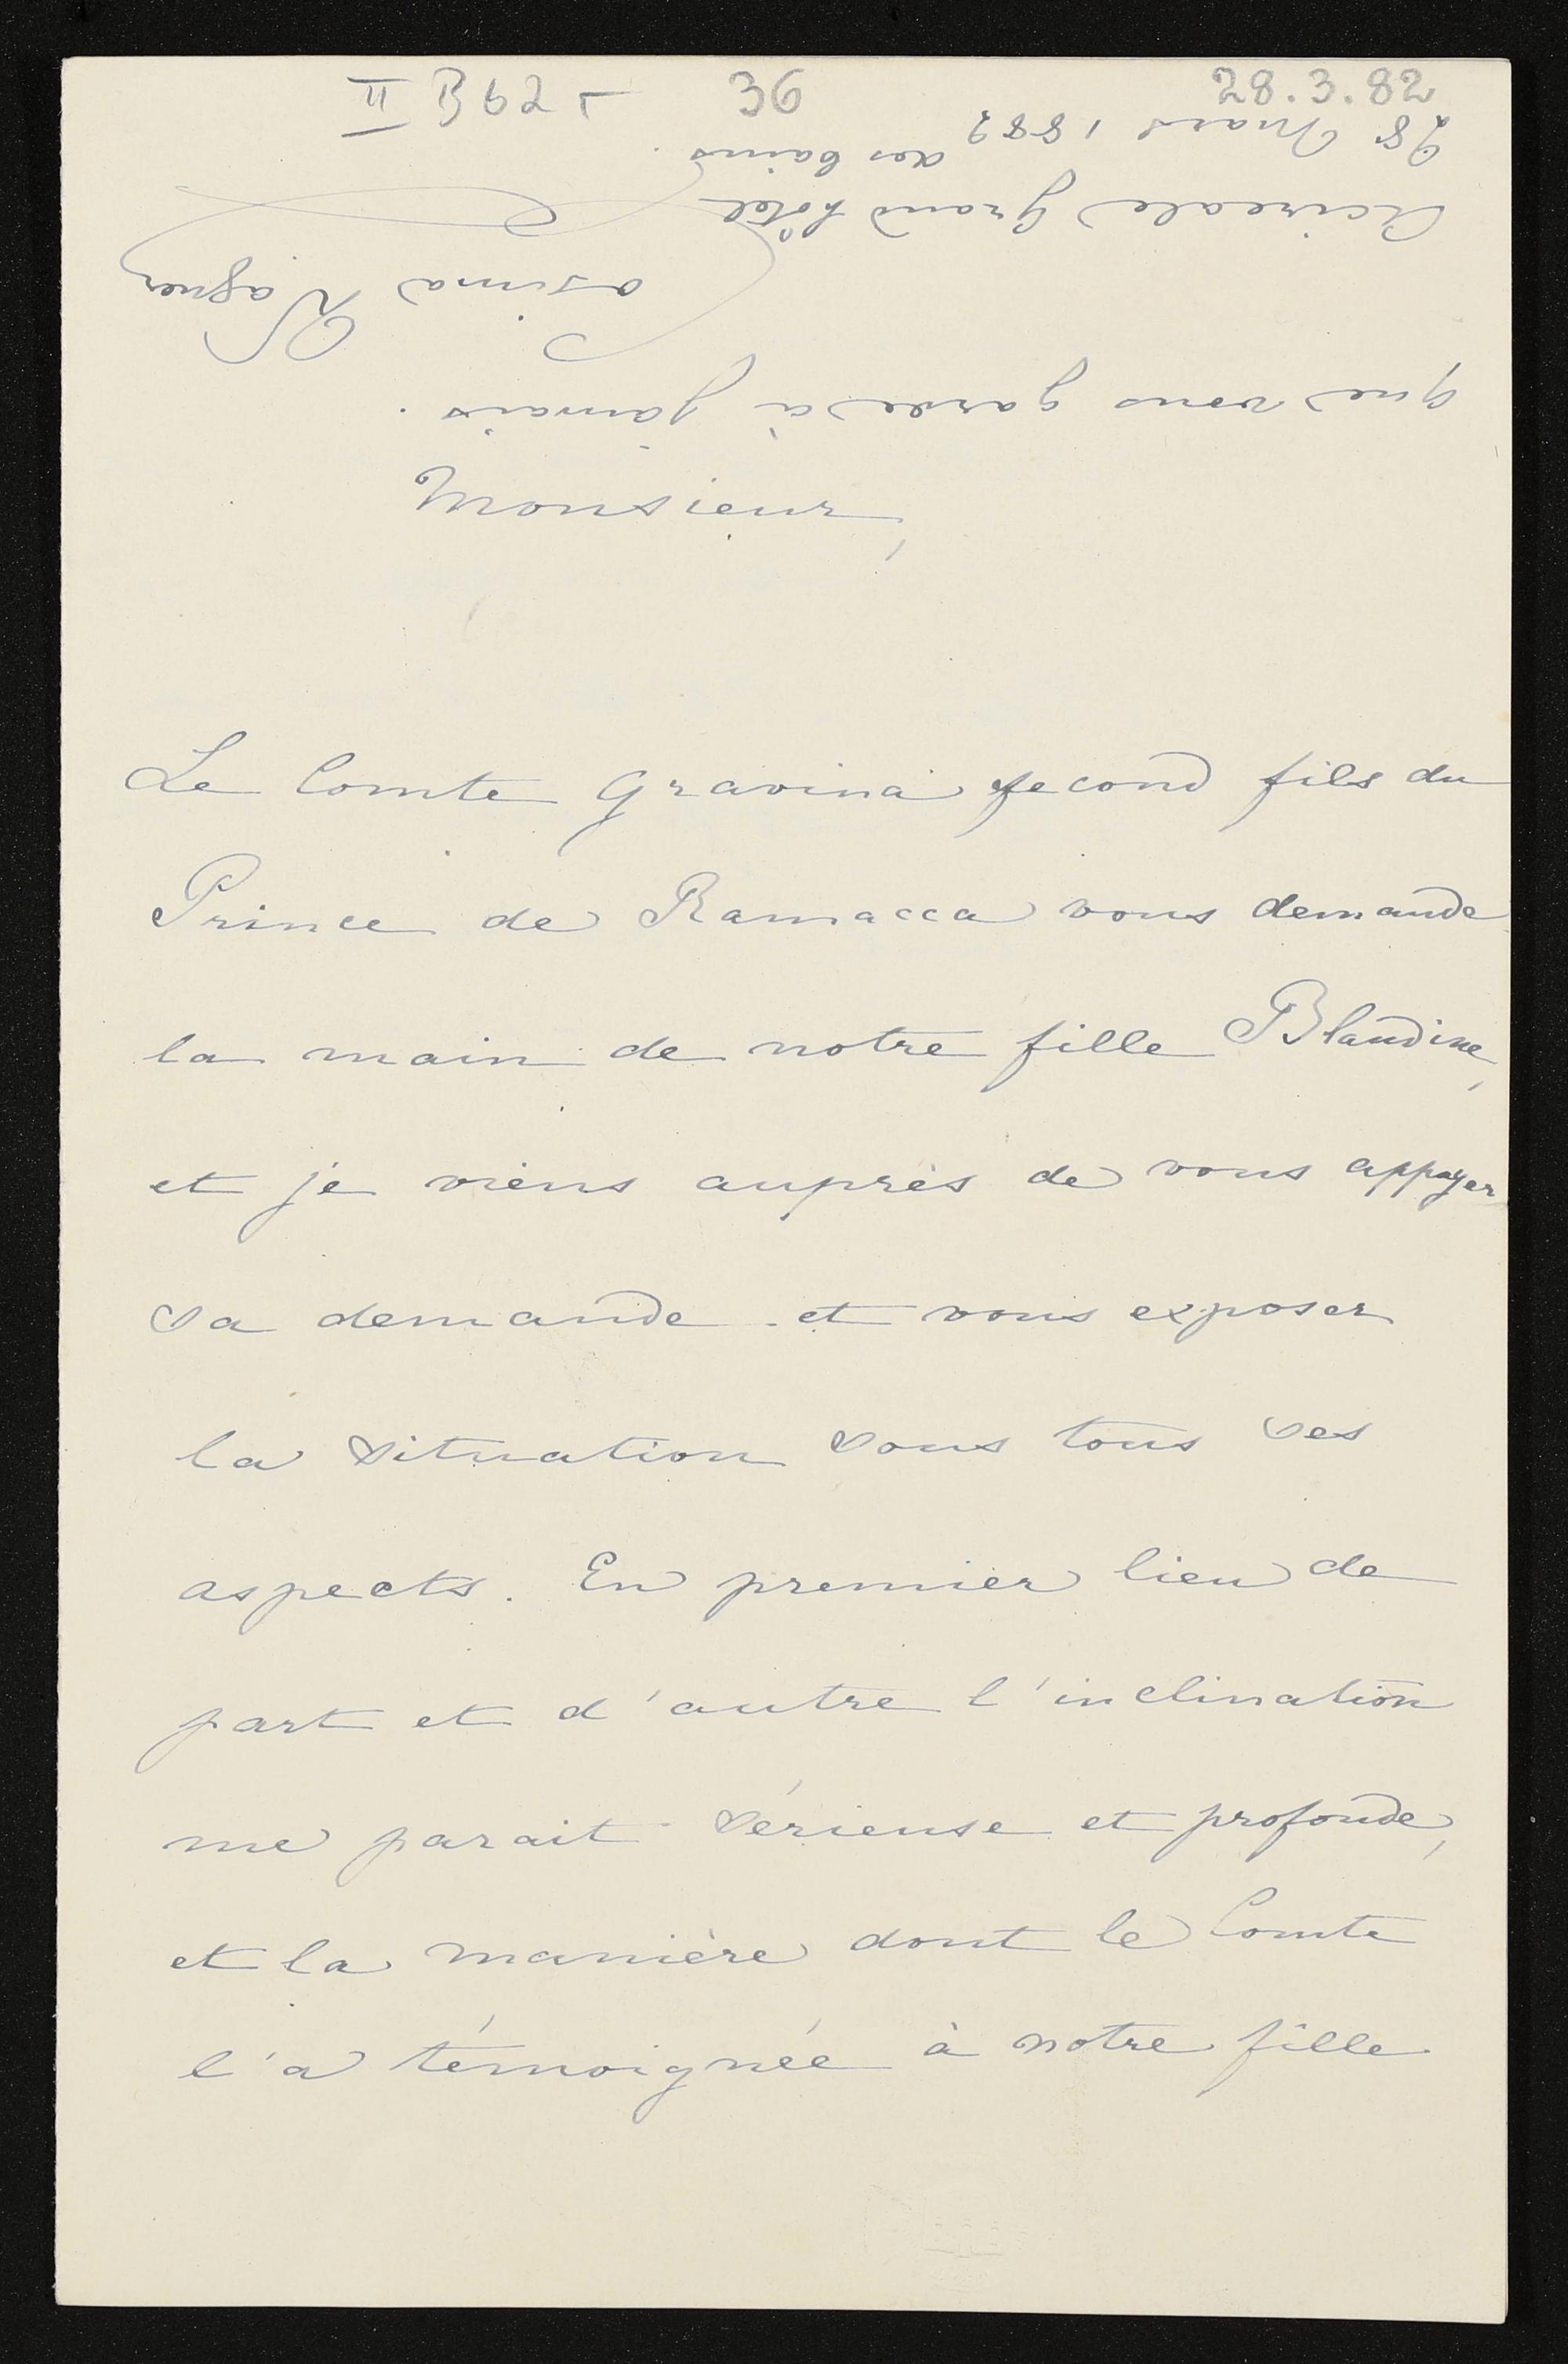 II B 62 - 36 28.3.82
Monsieur,
Le Comte Gravina second fils du
Prince de Ramacca vous demande
la main de notre fille Blandine,
et je viens auprès de vous appuyer
sa demande et vous exposer
la situation sous tous ses
aspects. En premier lieu de
part et d'autre l'inclination
me parait sérieuse et profonde,
et la manière dont le Comte
l'a témoignée à notre fille
que vous garde à jamais.
Cosima Wagner
Acireale Grand hôtel
des bains.
28 Mars 1882